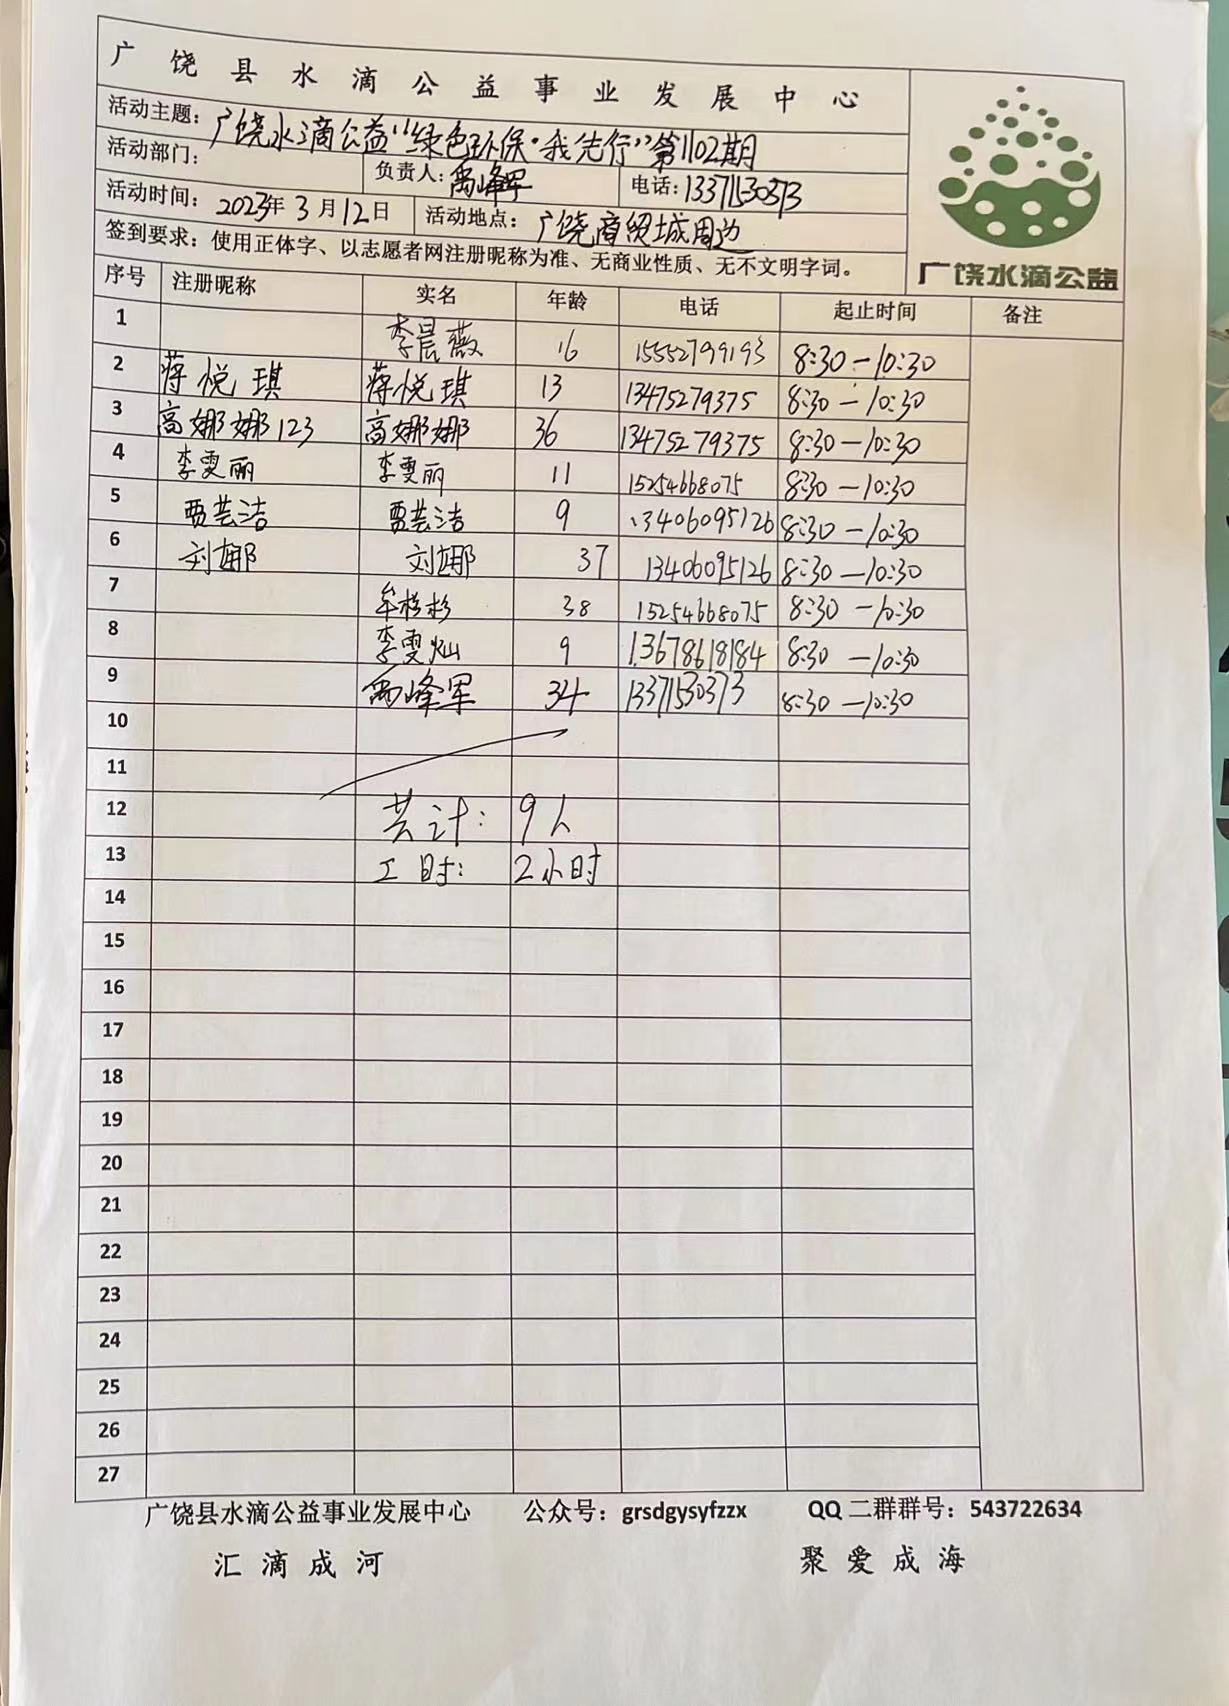 广饶县水滴公益事业发展中心
活动主题：广饶水滴公益“绿色环保·我先行”第1102期
活动部门： 负责人：禹峰军 电话：13371530373
活动时间：2023年3月12日 活动地点：广饶商贸城周边
签到要求：使用正体字、以志愿者网注册昵称为准、无商业性质、无不文明字词。
广饶水滴公益
序号 注册昵称 实名 年龄 电话 起止时间 备注
1 李晨薇 16 15552799193 8:30-10:30
2 蒋悦琪 蒋悦琪 13 13475279375 8:30-10:30
3 高娜娜123 高娜娜 36 13475279375 8:30-10:30
4 李雯丽 李雯丽 11 15254668075 8:30-10:30
5 贾芸洁 贾芸洁 9 13406095126 8:30-10:30
6 刘娜 刘娜 37 13406095126 8:30-10:30
7 牟杉杉 38 15254668075 8:30-10:30
8 李雯灿 9 13678618184 8:30-10:30
9 禹峰军 34 13371530373 8:30-10:30
10
11
12 共计： 9人
13 工时： 2小时
14
15
16
17
18
19
20
21
22
23
24
25
26
27
广饶县水滴公益事业发展中心 公众号：grsdgysyfzzx QQ二群群号：543722634
汇滴成河 聚爱成海